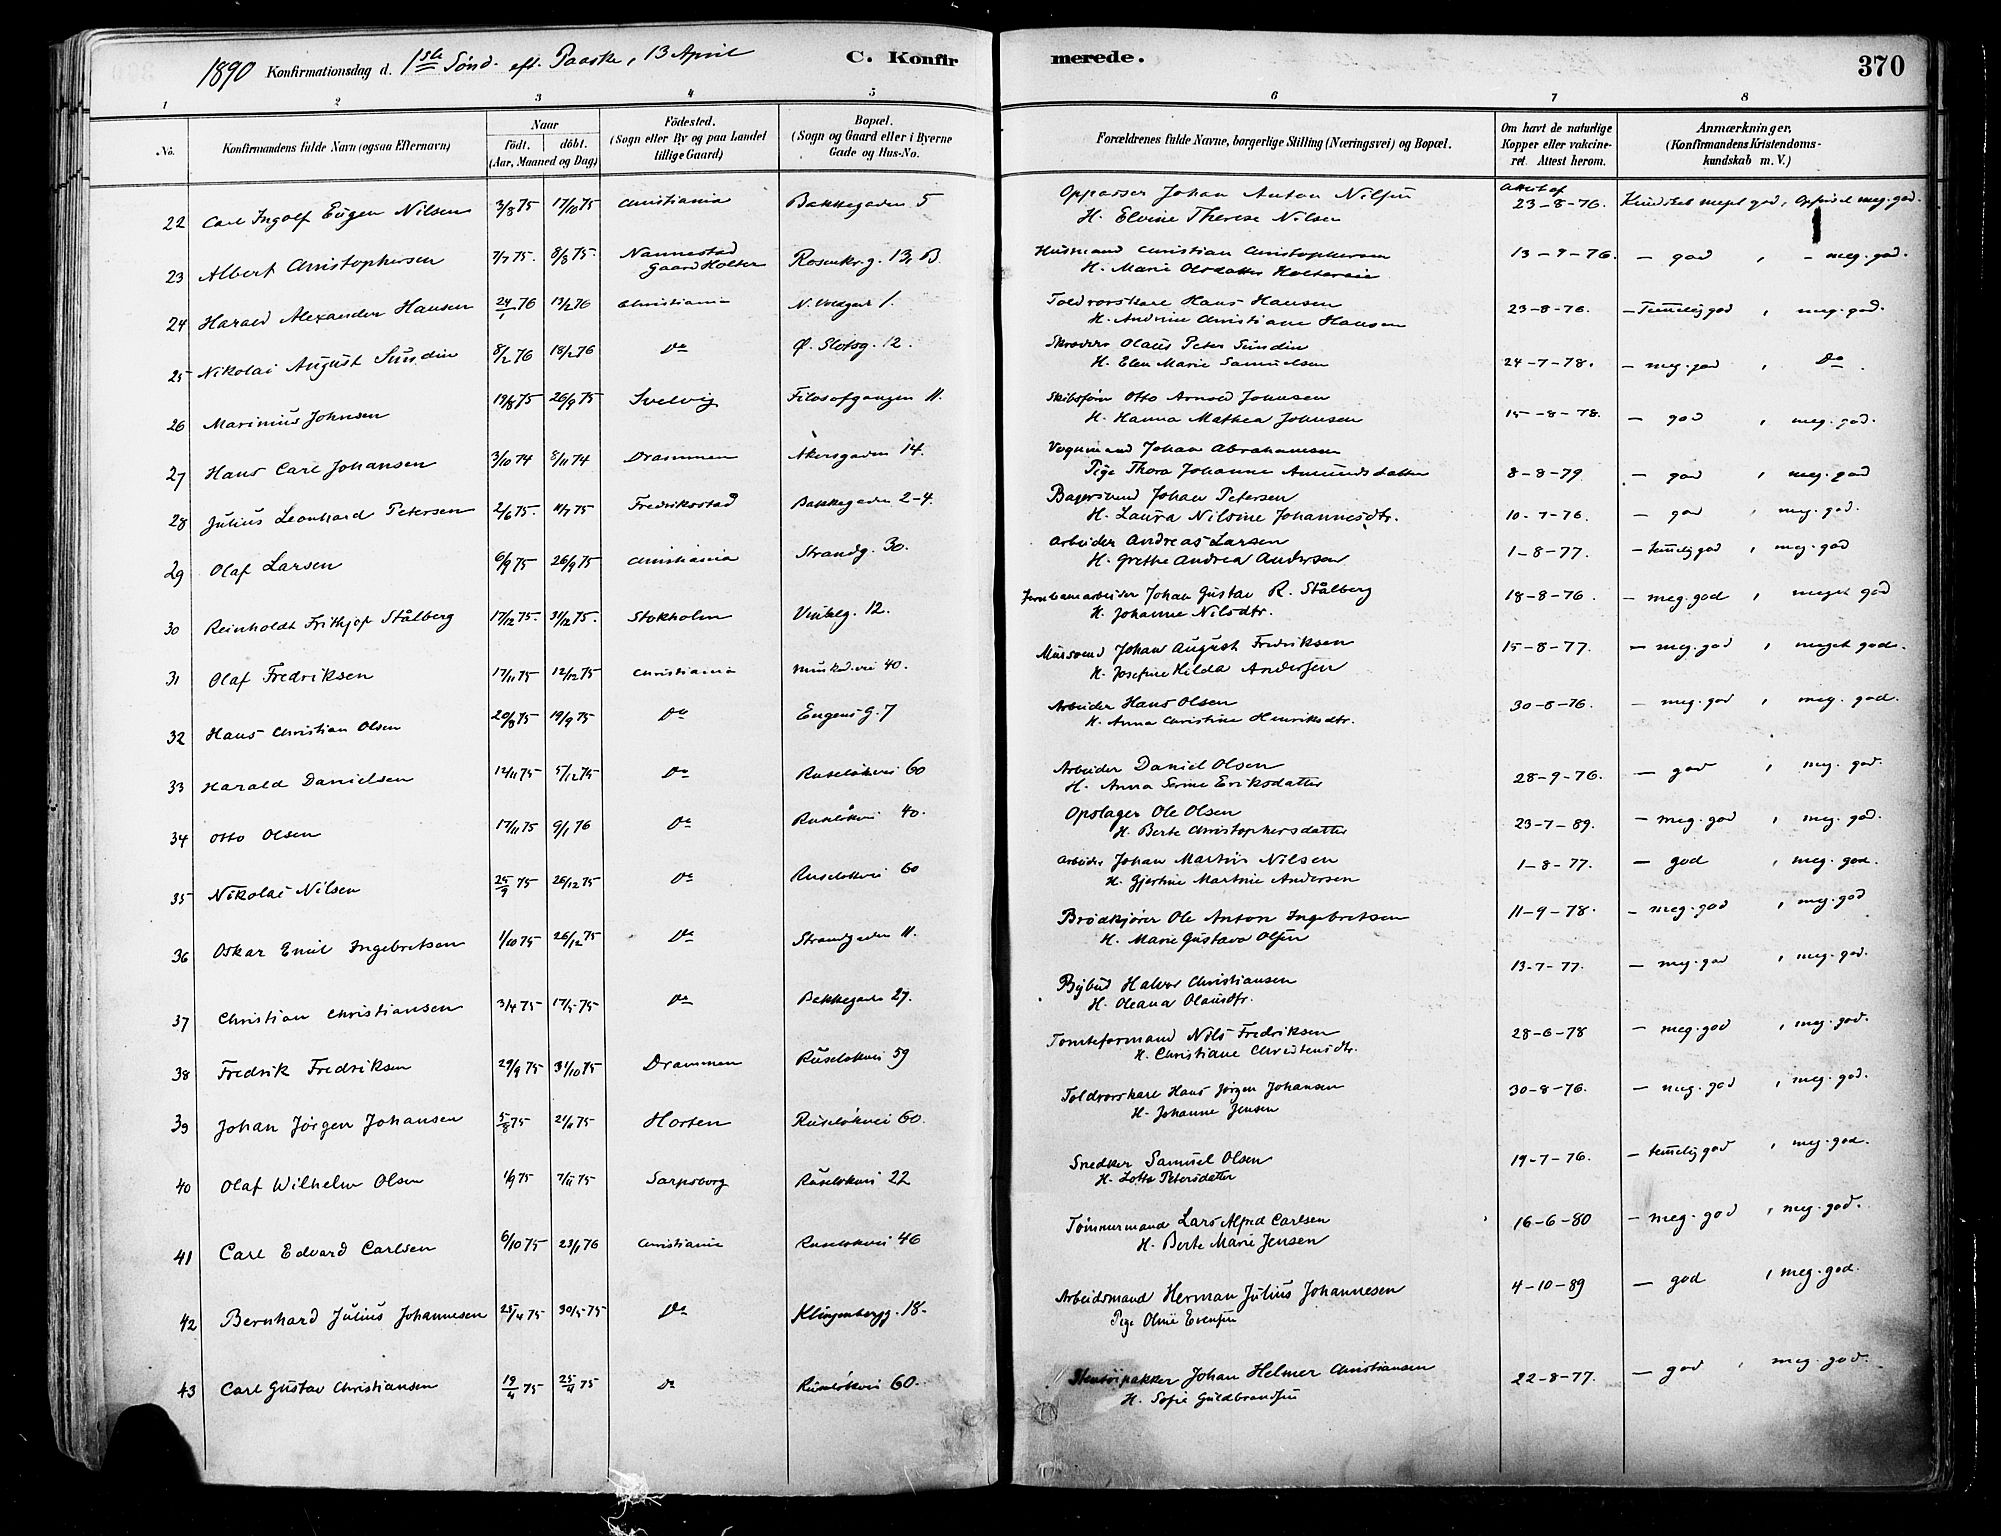 1890 Konfirmationsdag d. 1ste Sønd. eft. Paaske, 13 April C. Konfirmerede. 370
1 2 3 4 5 6 7 8
No. Konfirmandens fulde Navn (ogsaa Efternavn) Naar født. døbt. (Aar, Maaned og Dag) Fødested. (Sogn eller By og paa Landet tillige Gaard) Bopæl. (Sogn og Gaard eller i Byerne Gade og Hus-No. Forældrenes fulde Navne, borgerlige Stilling (Næringsvei) og Bopæl. Om havt de naturlige Kopper eller vakcineret. Attest herom. Anmærkninger, (Konfirmandens Kristendomskundskab m. V.)
22 Carl Ingolf Eugen Nilsen 3/8 75 17/10 75 Christiania Bakkegaden 5 Oppasser Johan Anton Nilsen Attest af 23-8-76. Kundskab meget god, Opførsel meg. god.
H. Elvine Therese Nilsen
23 Albert Christophersen 7/7 75. 8/8 75. Nannestad Gaard Holter Rosenkr. g. 13, B. Husmand Christian Christophersen 13-9-76. — god , — meg. god.
H. Marie Olsdatter Holtereie
24 Harald Alexander Hansen 24/1 76 13/2 76 Christiania N. Voldgad 1. Toldvorskare Hans Hansen 23-8-76. — Temelig god , meg. god.
H. Andrine Christiane Hansen
25 Nikolai August Sundin 8/2 76 18/2 76 Do Ø. Slotsg. 12. Skræder Olaus Peter Sundin 24-7-78. — meg. god , Do
H. Elen Marie Samuelsen
26 Marinius Johnsen 19/8 75 26/9 75 Svelvig Filosofgangen 11. Skibsføre Otto Arnold Johnsen 15-8-78. — god , meg. god.
H. Hanna Mathea Johnsen
27 Hans Carl Johansen 3/10 74 8/11 74 Drammen Akersgaden 14. Vognmand Johan Abrahamsen
Pige Thora Johanne Amundsdatter 8-8-79 — god , meg. god
28 Julius Leonhard Petersen 2/6 75. 11/7 75 Fredriksstad Bakkegaden 2-4. Bagersvend Johan Petersen
H. Laura Nilsine Johannesdtr. 10-7-76. — god , meg. god.
29 Olaf Larsen 6/9 75 26/9 75 Christiania Strandg. 30. Arbeider Andreas Larsen 1-8-77. — temelig god , meg. god
H. Grethe Andrea Andersen
30 Reinholdt Frithjof Stålberg 17/12 75. 31/12 75. Stokholm Vinkelg. 12. Jernbanearbeider Johan Gustav R. Stålberg 18-8-76. — meg. god , meget god
H. Johanne Nilsdtr.
31 Olaf Fredriksen 17/11 75 12/12 75 Christiania Munkd.vei 40. Mursvend Johan August Fredriksen 15-8-77. — meg. god , meget god.
H. Josefine Hilda Andersen
32 Hans Christian Olsen 20/8 75 19/9 75 Do Eugens G. 7 Arbeider Hans Olsen 30-8-76. — meg. god , meg. god.
H. Anna Christine Henriksdtr.
33 Harald Danielsen 12/11 75 5/12 75 Do Ruseløkvei 60 Arbeider Daniel Olsen 28-9-76. — god , meg. god.
H. Anna Serine Eriksdatter
34 Otto Olsen 17/11 75 9/1 76 Do Ruseløkvei 40. Opslager Ole Olsen 23-7-89. — meg. god , meg. god.
H. Berte Christophersdatter
35 Nikolai Nilsen 25/9 75 26/12 75 Do Ruseløkvei 60 Arbeider Johan Martin Nilsen 1-8-77. — god , meg. god.
H. Gjertine Martine Andersen
36 Oskar Emil Ingebretsen 1/10 75 26/12 75 Do Strandgaden 11. Brødkjører Ole Anton Ingebretsen 11-9-78. — meg. god , meg. god
H. Marie Gustava Olsen
37 Christian Christiansen 3/4 75 17/5 75 Do Bakkegaden 27. Bybud Halvor Christiansen 13-7-77. — meg. god , meg. god.
H. Oleana Olausdtr.
38 Fredrik Fredriksen 29/9 75 31/10 75 Drammen Ruseløkvei 59 Tomteformand Nils Fredriksen 28-6-78 — meg. god , meg. god.
H. Christiane Christensdtr.
39 Johan Jørgen Johansen 5/8 75 21/11 75 Horten Ruseløkvei 60. Toldvorskare Hans Jørgen Johansen 30-8-76. — meg. god , meg. god.
H. Johanne Jensen
40 Olaf Wilhelm Olsen 1/9 75 7/11 75 Sarpsborg Ruseløkvei 22 Snedker Samuel Olsen 19-7-76. — temelig god , meg. god.
H. Lotta Petersdatter
41 Carl Edvard Carlsen 6/10 75 23/1 76 Christiania Ruseløkvei 46 Tømmermand Lars Alfred Carlsen 16-6-80 — meg. god , meg. god.
H. Berte Marie Jensen
42 Bernhard Julius Johannesen 25/4 75 30/5 75 Do Klingenbergg. 18. Arbeidsmand Herman Julius Johannesen 4-10-89 — god , meg. god.
Pige Oline Evensen
43 Carl Gustav Christiansen 19/4 75 25/4 75 Do Ruseløkvei 60. Stentøipakker Johan Helmer Christiansen 22-8-77. — god , meg. god.
H. Sofie Guldbrandsen